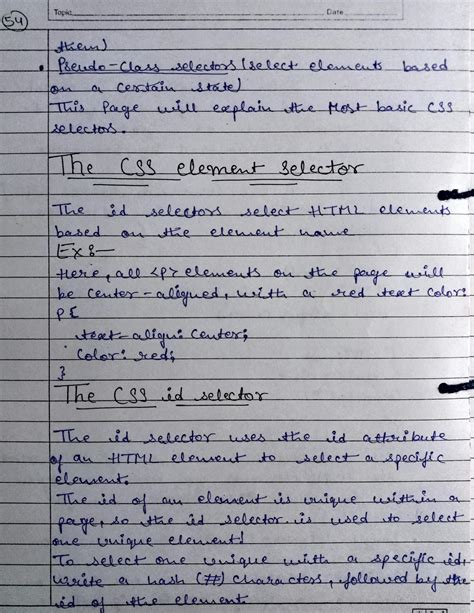 54
Topic
Date
them)
• Pseudo-Class selectors (select elements based
on a certain state)
This Page will explain the Most basic CSS
selectors.
The CSS element selector
The id selectors select HTML elements
based on the element name
Ex:-
Here, all <p> elements on the page will
be center-aligned, with a red text color:
p{
text-align: center;
color: red;
}
The CSS id selector
The id selector uses the id attribute
of an HTML element to select a specific
element.
The id of an element is unique within a
page, so the id selector is used to select
one unique element!
To select one unique with a specific id,
write a hash (#) character, followed by the
id of the element.